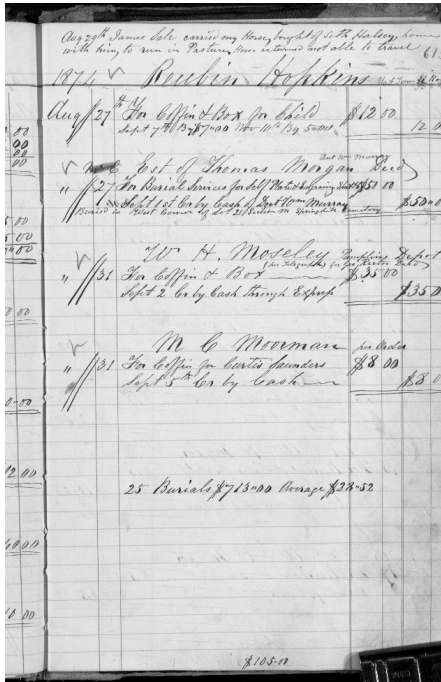 Aug 29th James Sale carried my Horse, bought of Seth Halsey, home
with him, to run in Pasture, Mare returned not able to travel
61
1874 Reubin Hopkins
Aug 27th For Coffin & Box for Child $12 00
Sept 7th By $7"00 Nov 14th By 5"00
12 0
Est of Thomas Morgan Decd
" 27 For Burial Services for Self Plate & Engraving $50 00
Sept 1st Cr by Cash of Wm Murray $50"00
Buried in West Corner of Lot 21 Section Springhill Cemetery
W. H. Moseley Pamplins Depot
(per Telegraph)
" 31 For Coffin & Box $35 00
Sept 2 Cr by Cash through Express $35 0
M C Moorman per Order
" 31 For Coffin for Curtis Saunders $8 00
Sept 5th Cr by Cash $8 0
25 Burials $713"00 Average $28"52
$105"00